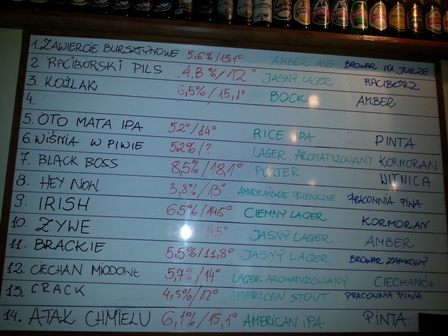 1. ZAWIERCIE BURSZTYNOWE 5,6%/13,1° AMBER ALE BROWAR NA JURZE
2 RACIBORSKI PILS 4,8%/12° JASNY LAGER RACIBÓRZ
3. KOŹLAK 6,5%/15,1° BOCK AMBER
4.
5. OTO MATA IPA 52°/14° RICE IPA PINTA
6. WIŚNIA W PIWIE 52%/? LAGER AROMATYZOWANY KORMORAN
7. BLACK BOSS 8,5%/18,1° PORTER WITNICA
8. HEY NOW 3,8%/13° PSZENICZNE PRACOWNIA PIWA
9. IRISH 65%/14,5° CIEMNY LAGER KORMORAN
10. ŻYWE 14,5° JASNY LAGER AMBER
11. BRACKIE 5,5%/11,8° JASNY LAGER BROWAR ZAMKOWY
12. CIECHAN MIODOWE 5,7%/14° LAGER AROMATYZOWANY CIECHANÓW
13. CRACK 4,5%/12° AMERICAN STOUT PRACOWNIA PIWA
14. ATAK CHMIELU 6,1%/15,1° AMERICAN IPA PINTA